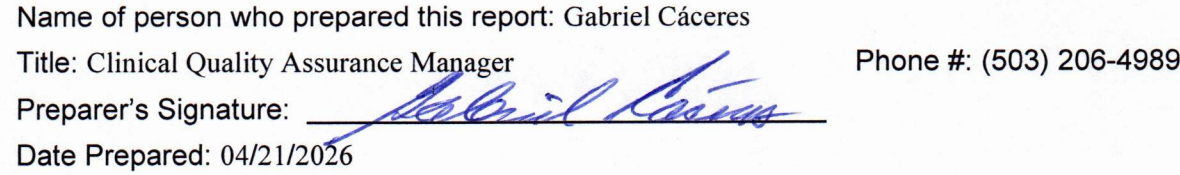 Name of person who prepared this report: Gabriel Cáceres
Title: Clinical Quality Assurance Manager Phone #: (503) 206-4989
Preparer's Signature: Gabriel Cáceres
Date Prepared: 04/21/2026